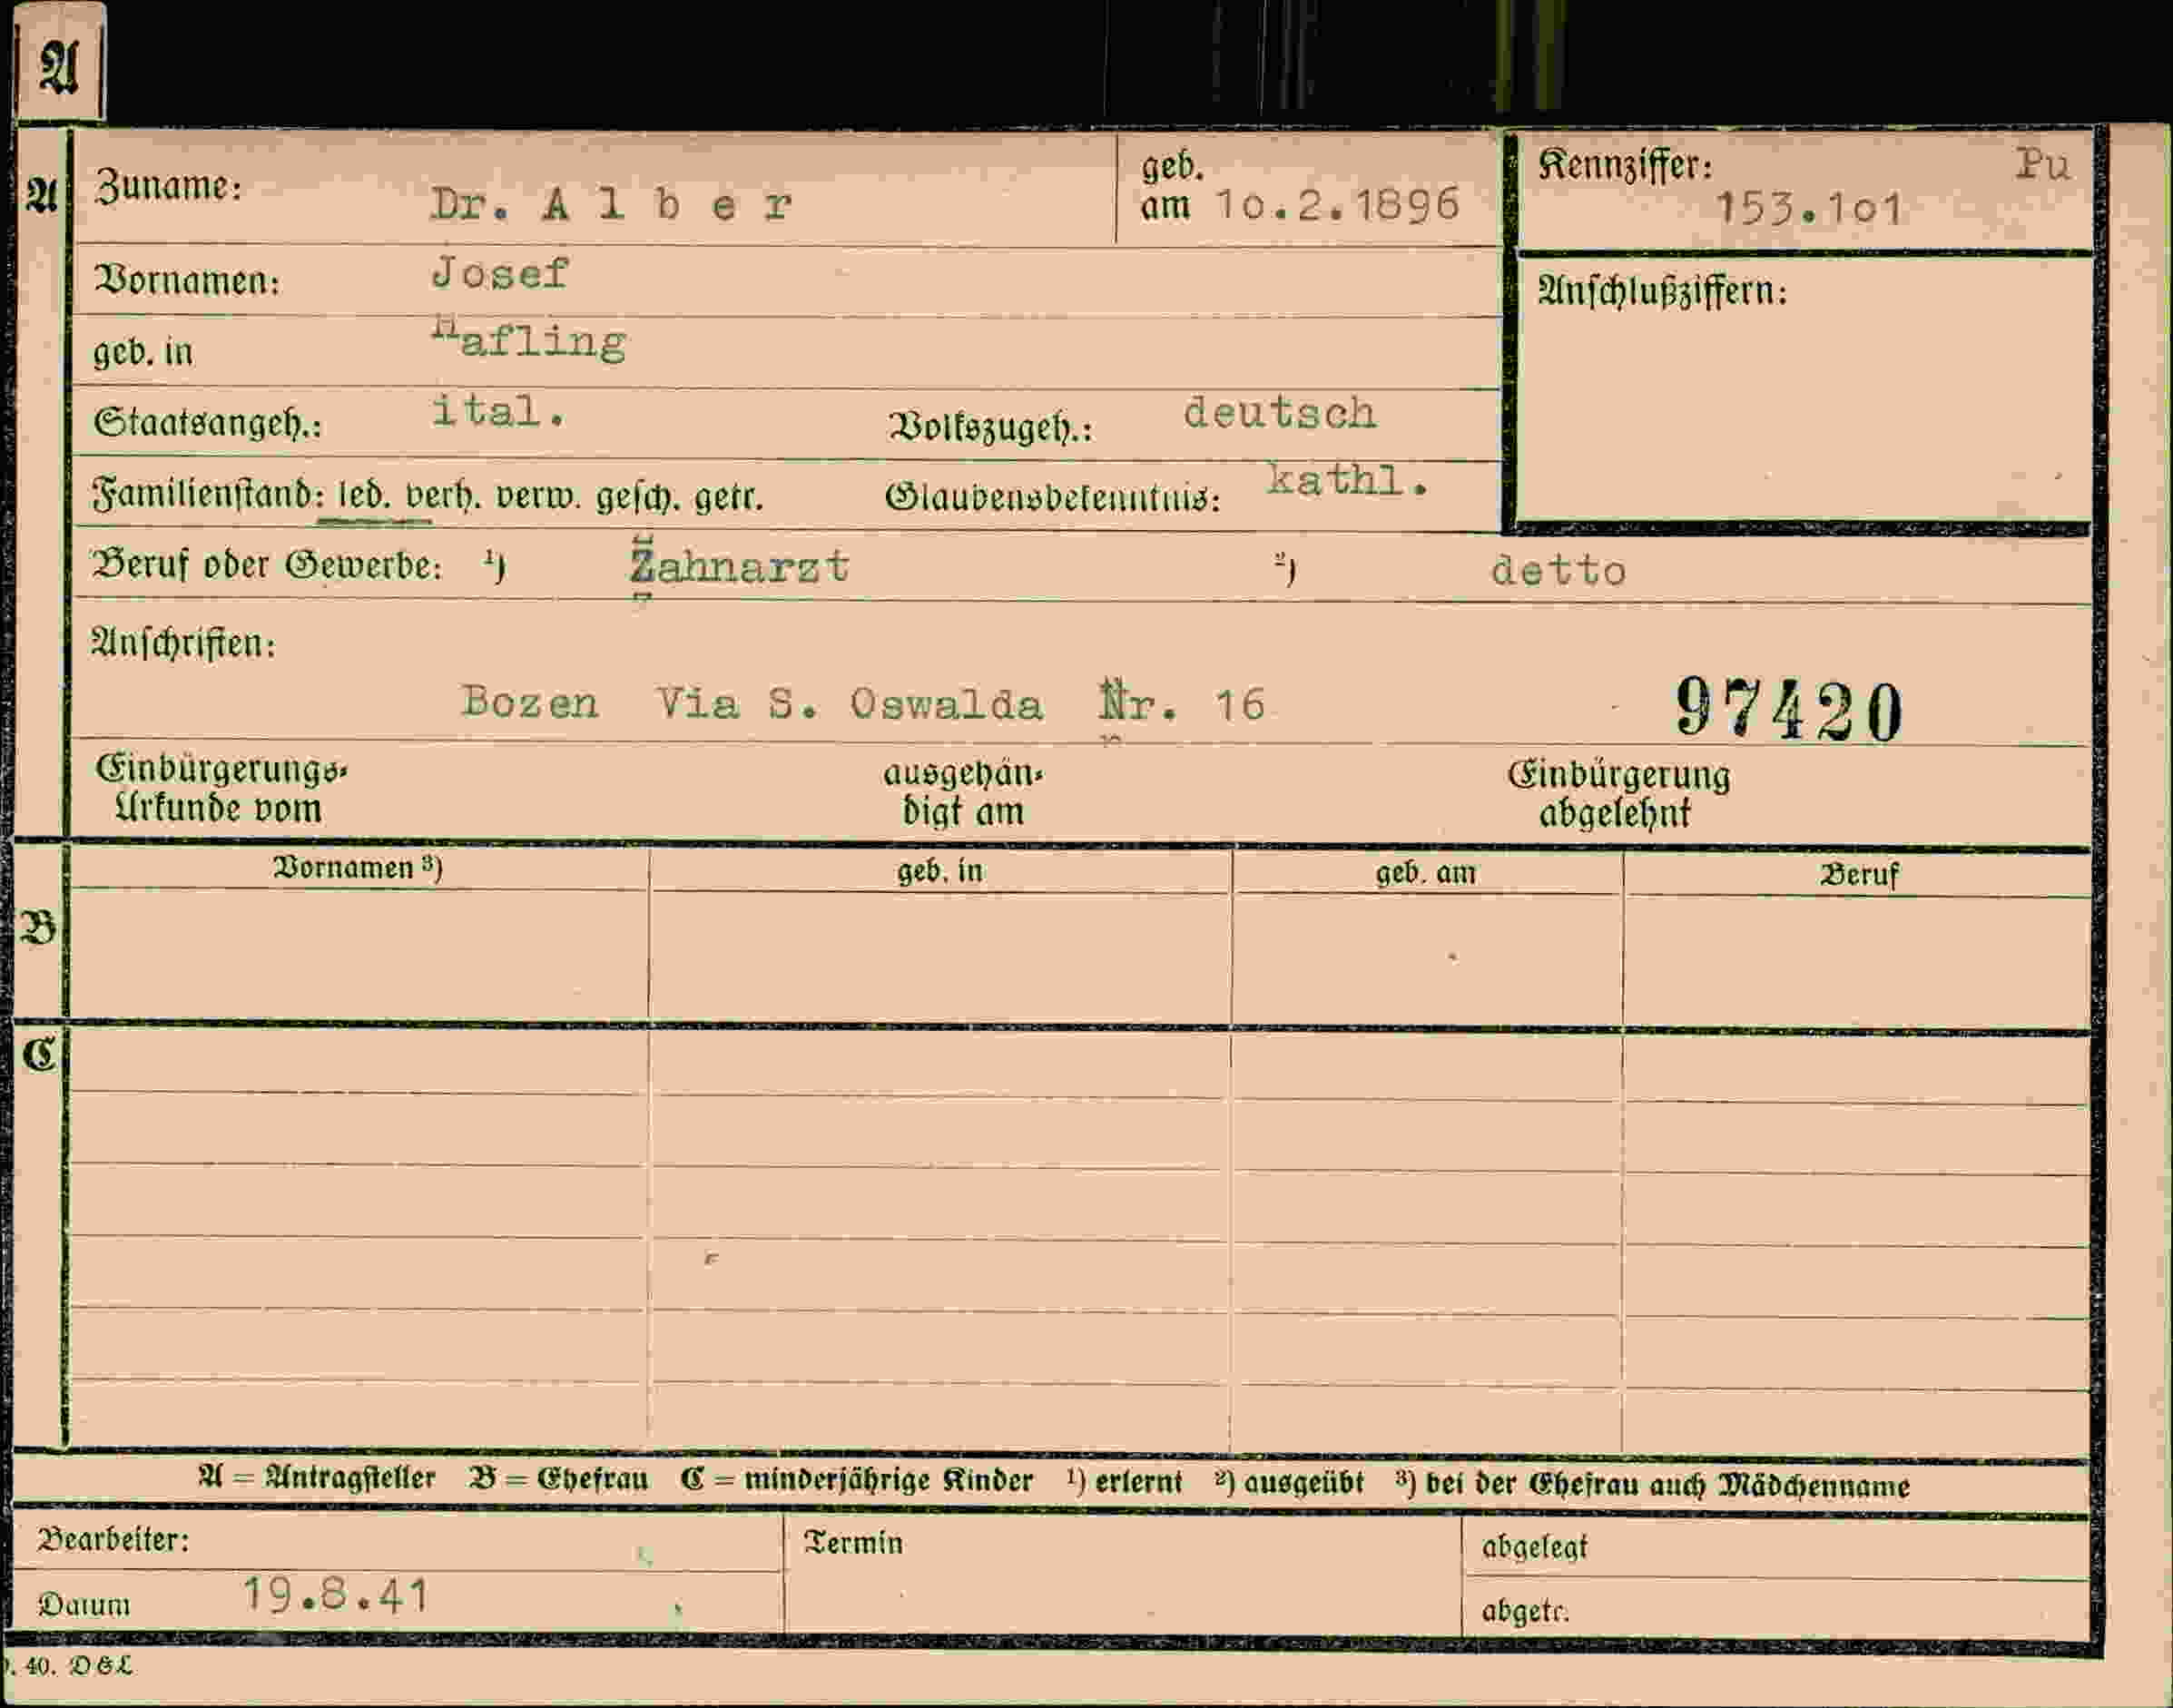 A
A
Zuname: Dr. A l b e r geb. am 10.2.1896 Kennziffer: Pu 153.1o1
Vornamen: Josef Anschlußziffern:
geb. in Hafling
Staatsangeh.: ital. Volkszugeh.: deutsch
Familienstand: led. verh. verw. gesch. getr. Glaubensbekenntnis: kathl.
Beruf oder Gewerbe: ¹) Zahnarzt ²) detto
Anschriften:
Bozen Via S. Oswalda Nr. 16 97420
Einbürgerungs- ausgehän- Einbürgerung
Urkunde vom digt am abgelehnt
Vornamen ³) geb. in geb. am Beruf
B
C
A = Antragsteller B = Ehefrau C = minderjährige Kinder ¹) erlernt ²) ausgeübt ³) bei der Ehefrau auch Mädchenname
Bearbeiter: Termin abgelegt
Datum 19.8.41 abgetr.
40. D&L